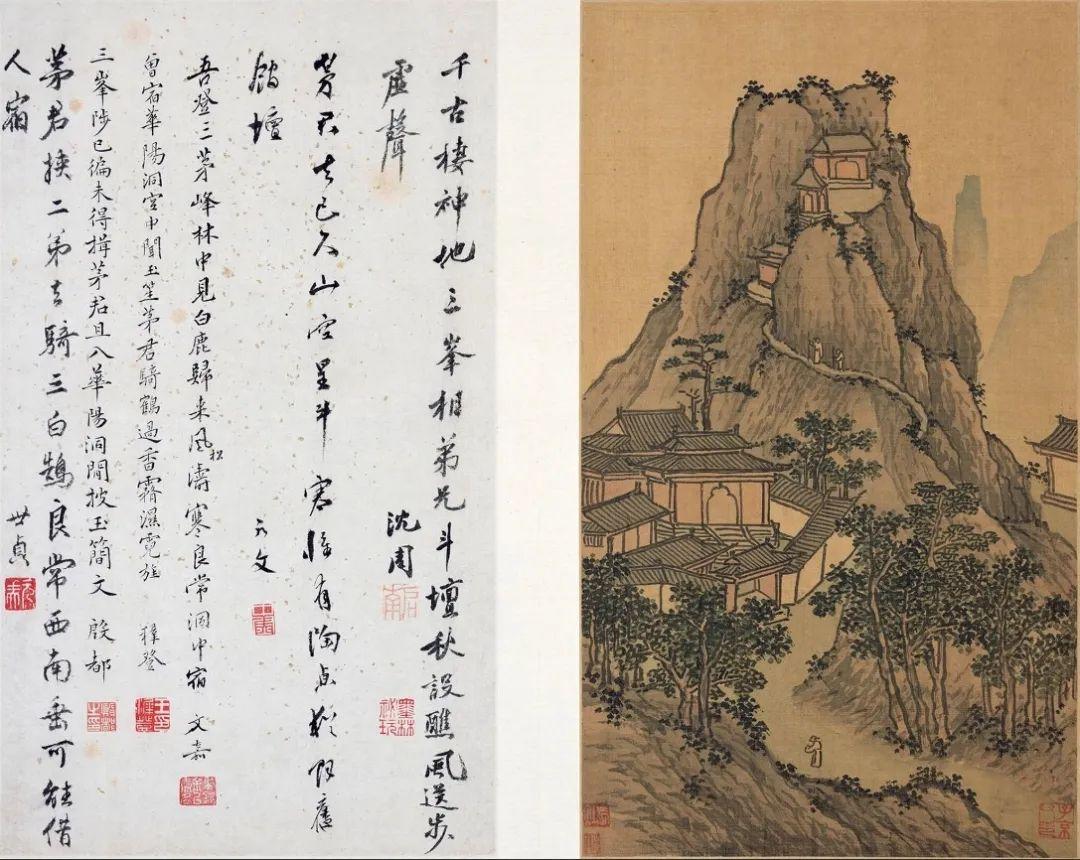 千古棲神地三峯相弟兄斗壇秋設醮風送步
虛聲
沈周
茅君去已久山空星斗寒惟有陶舊
館壇
吾登三茅峰林中見白鹿歸来松風濤寒良常洞中宿 文嘉
曾宿華陽洞宮中聞玉笙茅君騎鶴過香霧濕霓旌 穉登
三峯陟已徧未得揖茅君且入華陽洞閒披玉簡文 殷都
茅君挾二弟去騎三白鵠良常西南垂可能借
人宿
世貞